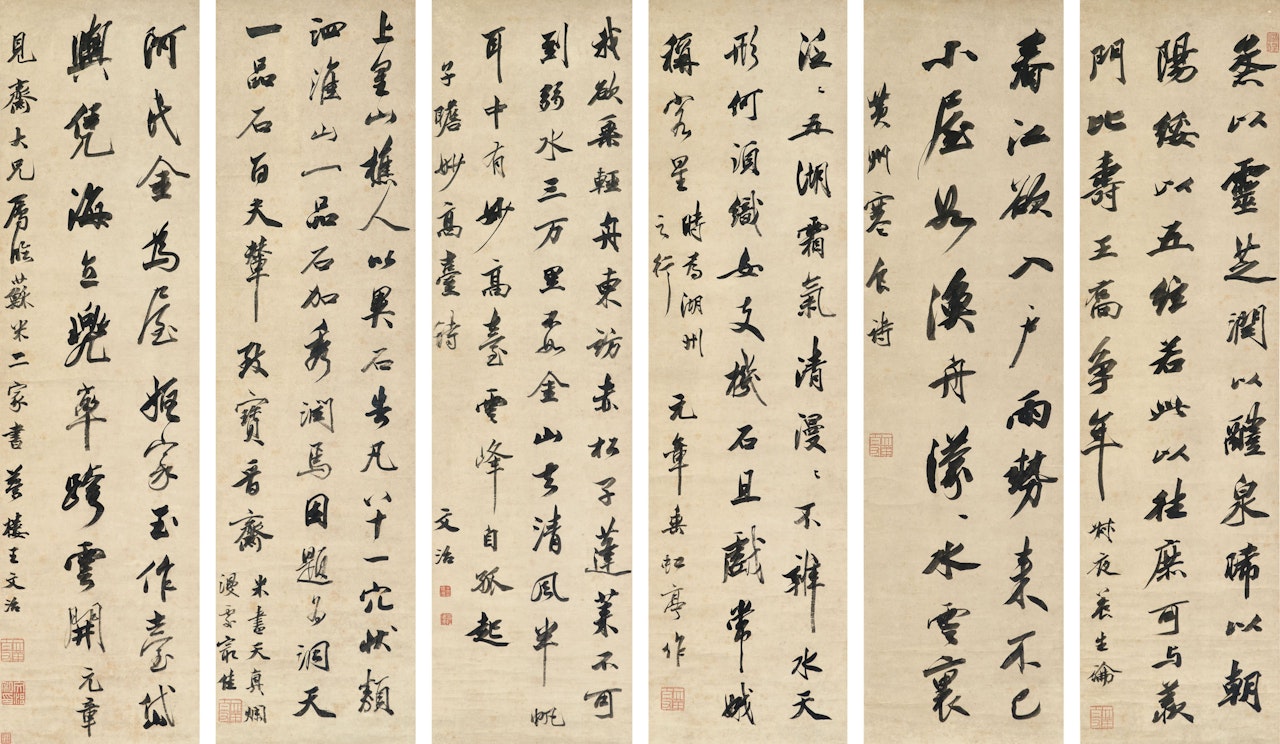 蒸以靈芝潤以醴泉晞以朝
陽綏以五絃若此以往庶可与羨
門比壽王喬争年
叔夜养生論
春江欲入户雨勢来不已
小屋如漁舟濛〻水雲裏
黄州寒食诗
泛〻五湖霜氣清漫〻不辨水天
形何須織女支機石且戲常娥
稱客星
時为湖州
之行
元章垂虹亭作
我欲乗輕舟東訪赤松子蓬莱不可
到弱水三万里不如金山去清風半帆
耳中有妙高臺雲峰自孤起
子瞻妙高臺詩
文治
上皇山樵人以異石告凡八十一穴状類
泗淮山一品石加秀润焉因題为洞天
一品石百夫輦致寶晋齋
米書天真爛
漫處最佳
阿氏金为屋姬家玉作臺岱
輿凭海立兜率跨雲開元章
見齋大兄属臨蘇米二家書夢樓王文治